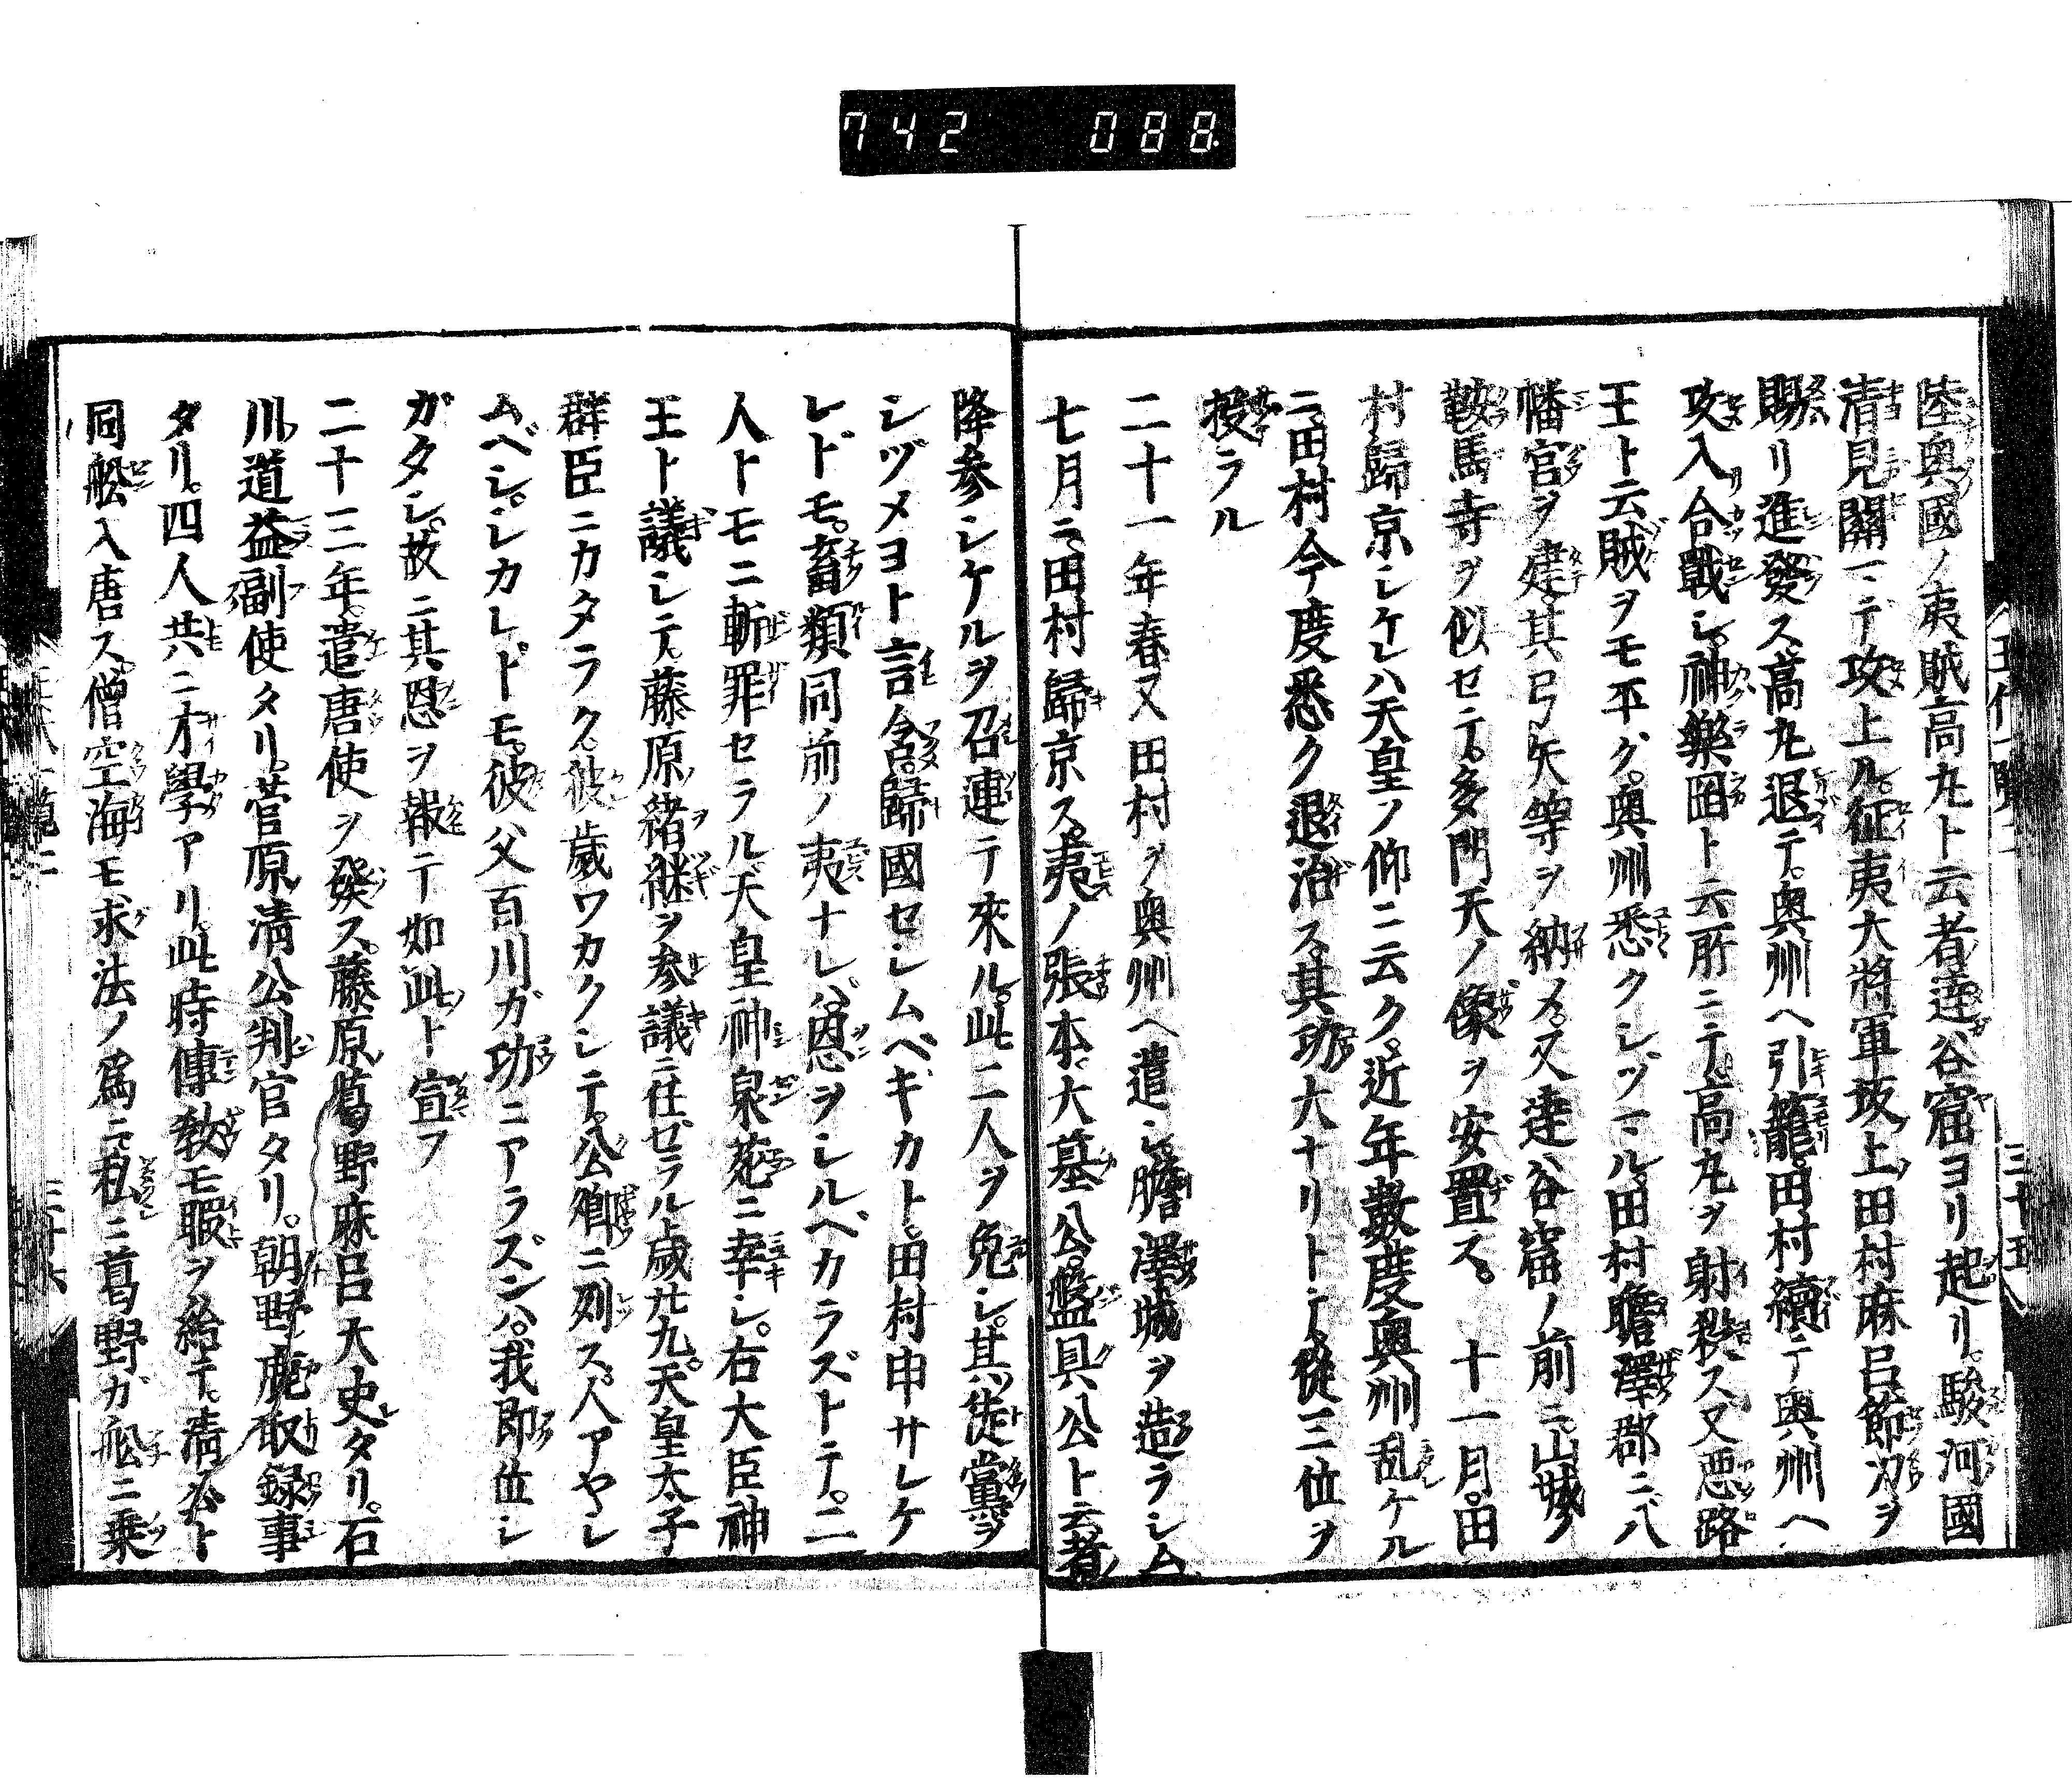 742 088
陸奥國ノ夷賊高丸ト云者達谷窟ヨリ起リ駿河國
清見關マデ攻上ル征夷大將軍坂上田村麻呂節刀ヲ
賜リ進發ス高丸退テ奥州ヘ引籠田村續テ奥州ヘ
攻入合戰シ神樂岡ト云所ニテ高丸ヲ射殺ス又悪路
王ト云賊ヲモ平グ奥州悉クシヅマル田村膽澤郡ニ八
幡宮ヲ建其弓矢等ヲ納メ又達谷窟ノ前ニ山城ノ
鞍馬寺ヲ似セテ多門天ノ像ヲ安置ス。十一月田
村歸京シケレハ天皇ノ仰ニ云ク近年數度奥州乱ケル
ニ田村今度悉ク退治ス其功大ナリトテ從三位ヲ
授ラル
二十一年春又田村ヲ奥州ヘ遣シ膽澤城ヲ造ラシム
七月ニ田村歸京ス夷ノ張本大墓公盤具公ト云者
降参シケルヲ召連テ來ル此二人ヲ免シ其徒黨ヲ
シヅメヨト言含歸國セシムベキカト田村申サレケ
レドモ畜類同前ノ夷ナレバ恩ヲシルベカラズトテ二
人トモニ斬罪セラル天皇神泉苑ニ幸シ右大臣神
王ト議シテ藤原緒継ヲ参議ニ任ゼラル歳廿九天皇太子
群臣ニカタラク彼歳ワカクシテ公卿ニ列ス人アヤシ
ムベシシカレドモ彼父百川ガ功ニアラズンハ我即位シ
ガタシ故ニ其恩ヲ報テ如此ト宣フ
二十三年遣唐使ヲ發ス藤原葛野麻呂大史タリ石
川道益副使タリ菅原清公判官タリ朝野鹿取録事
タリ四人共ニ才學アリ此時傳教モ暇ヲ給テ清公ト
同舩入唐ス僧空海モ求法ノ為ニ私ニ葛野ガ舩ニ乗